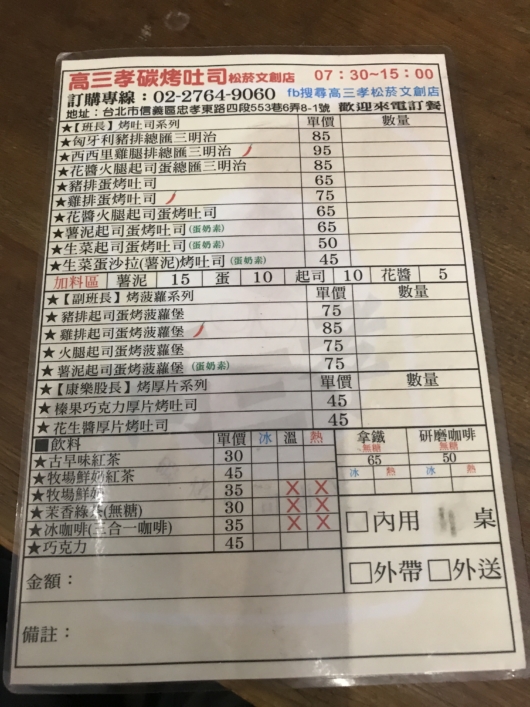 高三孝碳烤吐司松菸文創店 07：30~15：00
訂購專線：02-2764-9060 fb搜尋高三孝松菸文創店
地址：台北市信義區忠孝東路四段553巷6弄8-1號 歡迎來電訂餐
★【班長】烤吐司系列 單價 數量
★匈牙利豬排總匯三明治 85
★西西里雞腿排總匯三明治 95
★花醬火腿起司蛋總匯三明治 85
★豬排蛋烤吐司 65
★雞排蛋烤吐司 75
★花醬火腿起司蛋烤吐司 65
★薯泥起司蛋烤吐司(蛋奶素) 65
★生菜起司蛋烤吐司(蛋奶素) 50
★生菜蛋沙拉(薯泥)烤吐司(蛋奶素) 45
加料區 薯泥 15 蛋 10 起司 10 花醬 5
★【副班長】烤菠蘿系列 單價 數量
★豬排起司蛋烤菠蘿堡 75
★雞排起司蛋烤菠蘿堡 85
★火腿起司蛋烤菠蘿堡 75
★薯泥起司蛋烤菠蘿堡(蛋奶素) 75
★【康樂股長】烤厚片系列 單價 數量
★榛果巧克力厚片烤吐司 45
★花生醬厚片烤吐司 45
■飲料 單價 冰 溫 熱 拿鐵 無糖 65 研磨咖啡 無糖 50
★古早味紅茶 30 冰 熱 冰 熱
★牧場鮮奶紅茶 45
★牧場鮮奶 35 X X
★茉香綠茶(無糖) 30 X X
★冰咖啡(三合一咖啡) 35 X X
★巧克力 45
□內用 桌
□外帶 □外送
金額：
備註：